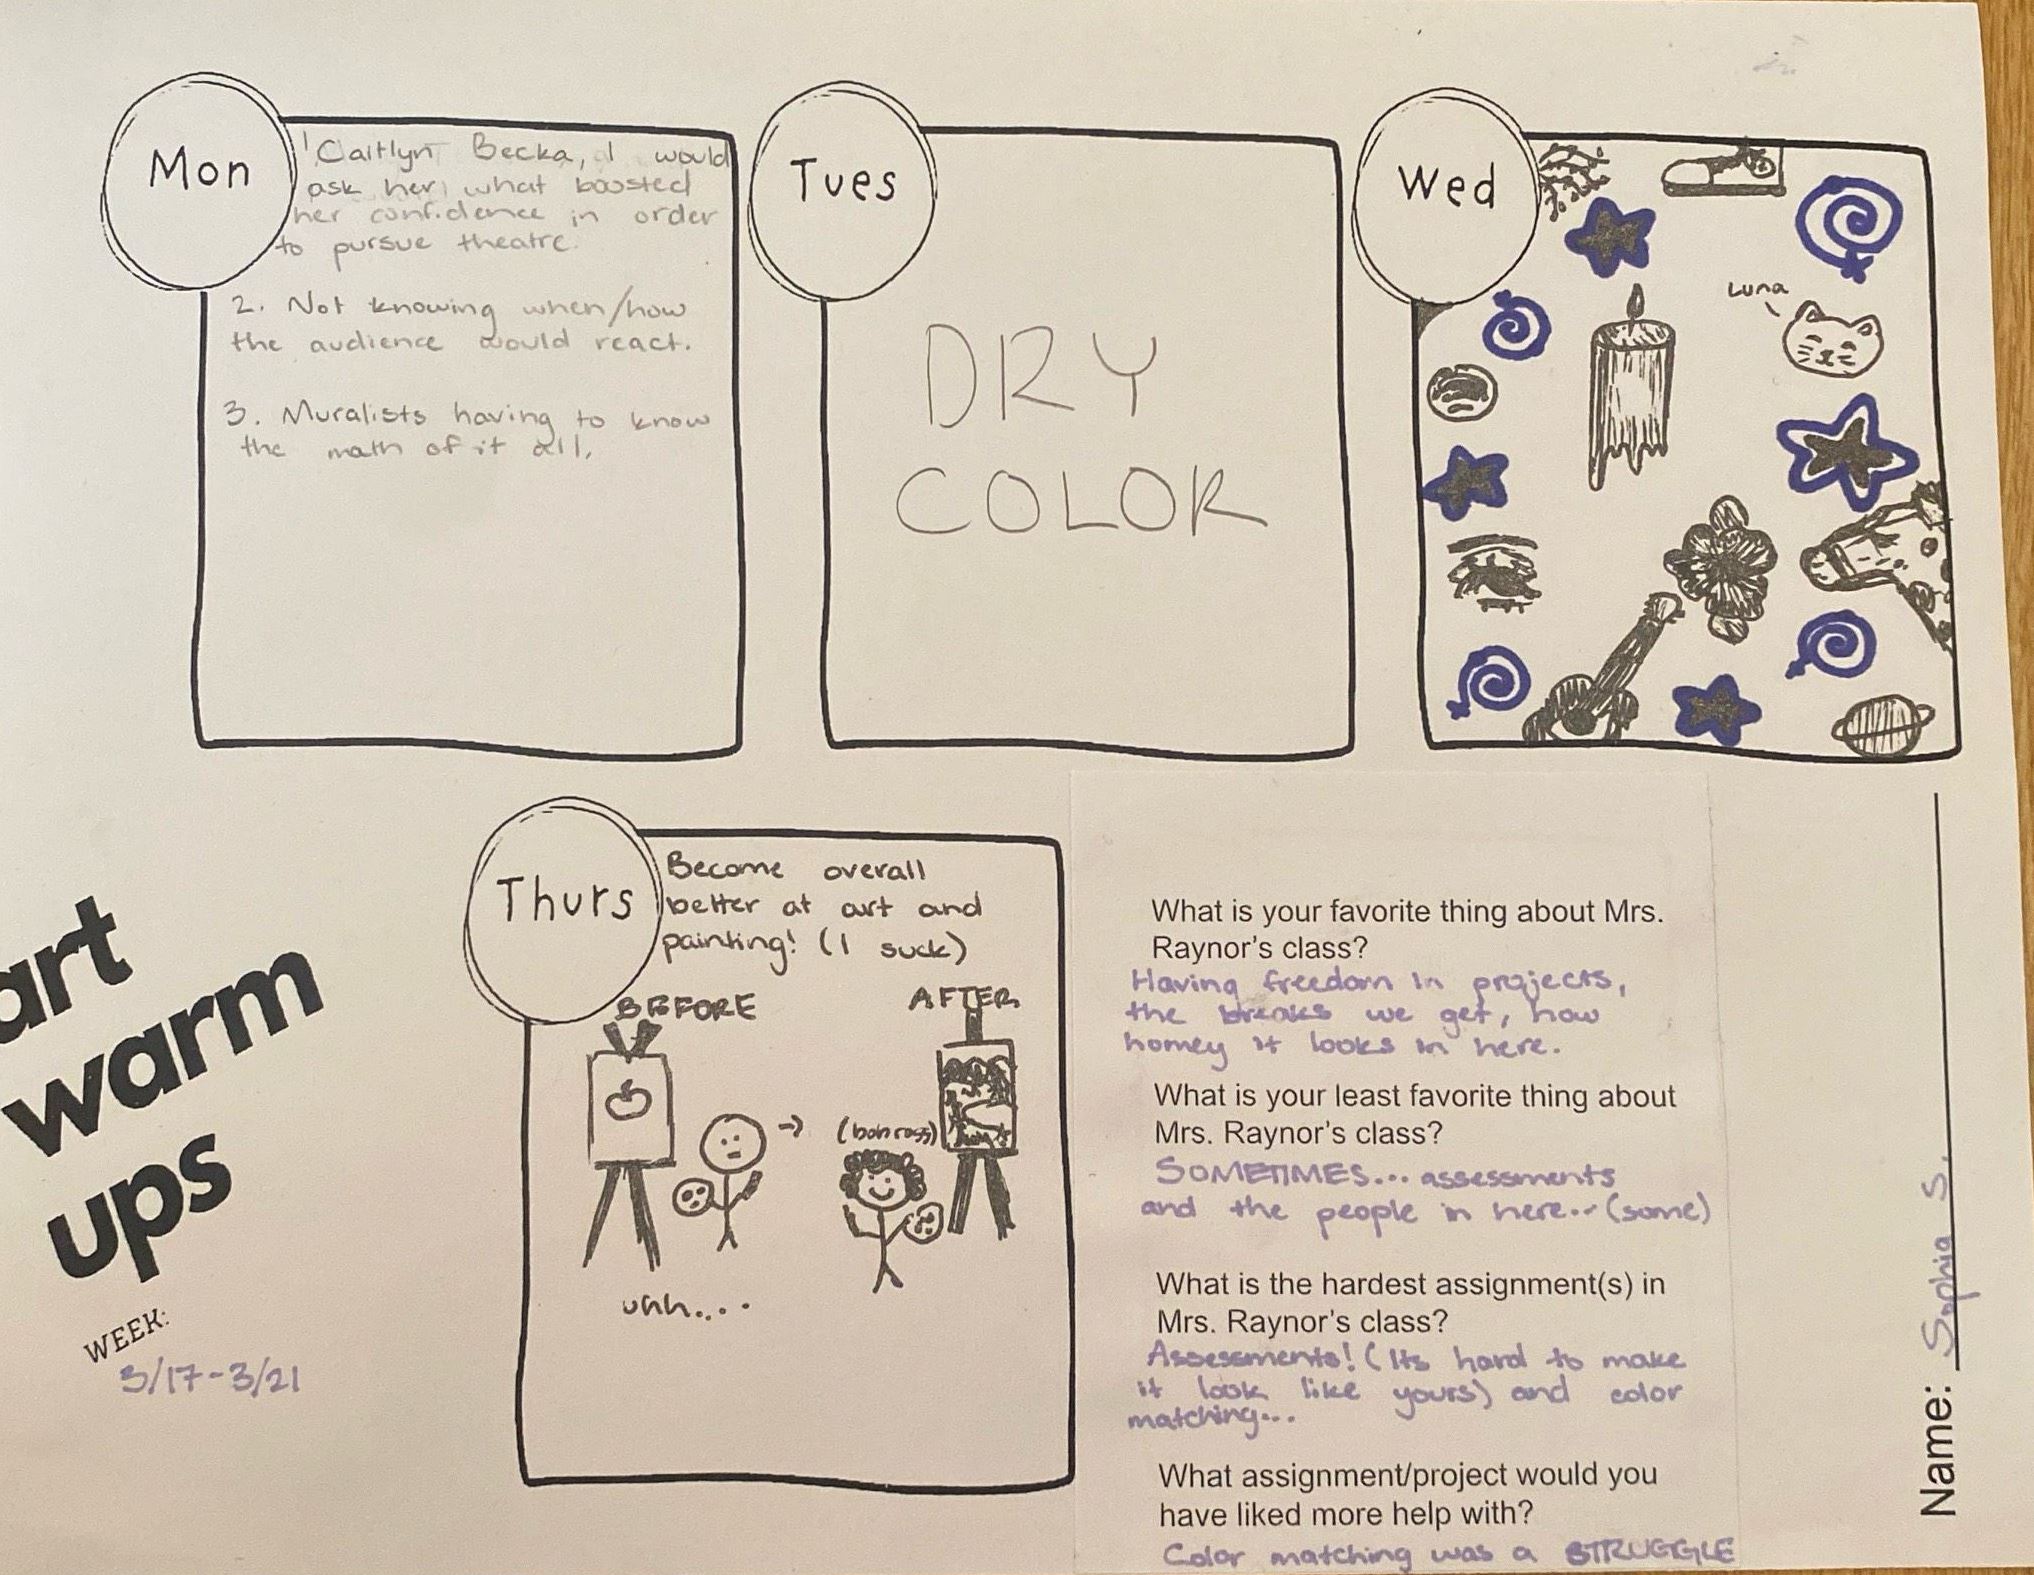 Mon
1 Caitlyn Becka, I would
ask her what boosted
her confidence in order
to pursue theatre.
2. Not knowing when/how
the audience would react.
3. Muralists having to know
the math of it all.
Tues
DRY
COLOR
Wed
Luna
Thurs
Become overall
better at art and
painting! (I suck)
BEFORE
AFTER
(bob ross)
uhh....
art
warm
ups
WEEK:
3/17-3/21
What is your favorite thing about Mrs.
Raynor's class?
Having freedom in projects,
the breaks we get, how
homey it looks in here.
What is your least favorite thing about
Mrs. Raynor's class?
SOMETIMES... assessments
and the people in here.. (some)
What is the hardest assignment(s) in
Mrs. Raynor's class?
Assessments! (Its hard to make
it look like yours) and color
matching...
What assignment/project would you
have liked more help with?
Color matching was a STRUGGLE
Name: Sophia S.